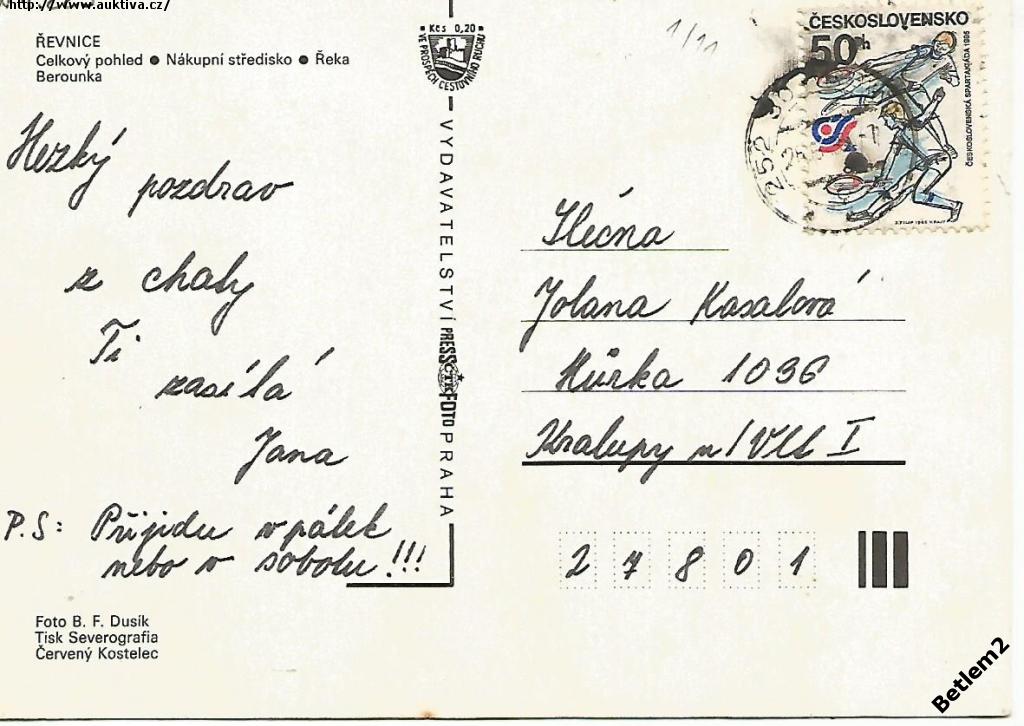 http://www.auktiva.cz/
ŘEVNICE
Celkový pohled ● Nákupní středisko ● Řeka
Berounka
Kčs 0,20
VE PROSPĚCH CESTOVNÍHO RUCHU
1/11
ČESKOSLOVENSKO
50h
ČESKOSLOVENSKÁ SPARTAKIÁDA 1985
252
Hezký
pozdrav
z chaty
Ti
zasílá
Jana
P.S: Přijidu v pátek
nebo v sobotu!!!
VYDAVATELSTVÍ PRESSFOTO PRAHA
ČTK
Slečna
Jolana Kasalová
Hůrka 1036
Kralupy n/Vlt I
27801
Foto B. F. Dusík
Tisk Severografia
Červený Kostelec
Betlem2